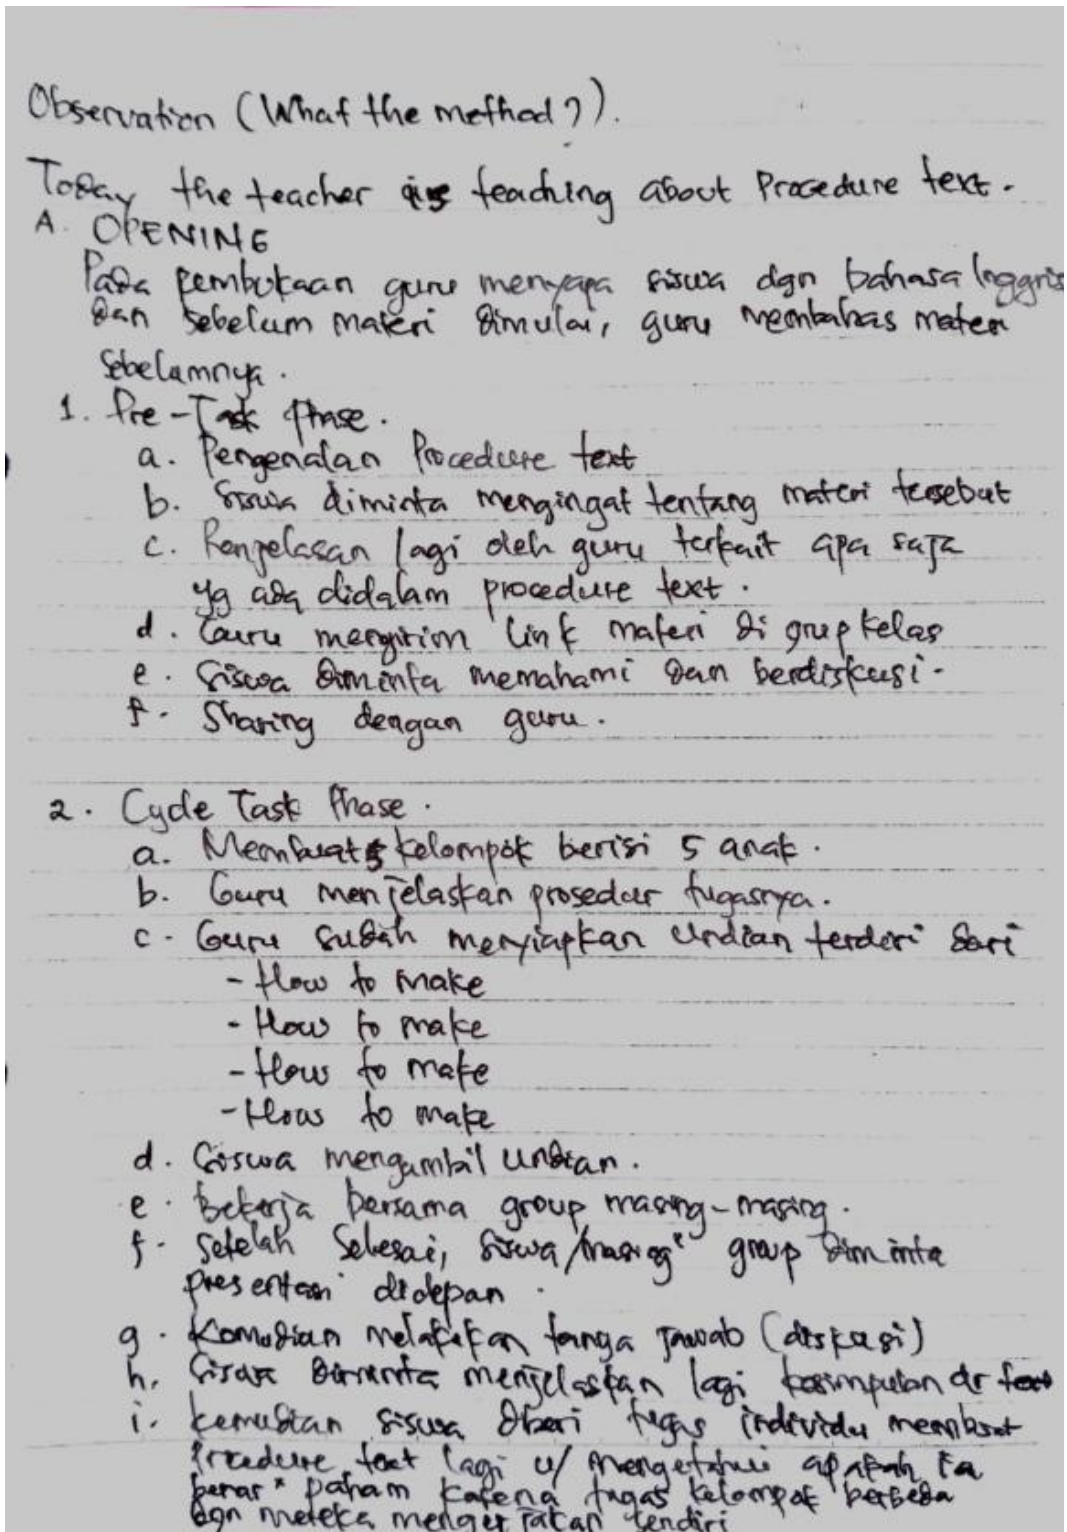 Observation (What the method?).
Today the teacher is teaching about Procedure text.
A. OPENING
Pada pembukaan guru menyapa siswa dgn bahasa Inggris
dan sebelum materi dimulai, guru membahas materi
sebelumnya.
1. Pre-Task Phase.
a. Pengenalan Procedure text
b. Siswa diminta mengingat tentang materi tersebut
c. Penjelasan lagi oleh guru terkait apa saja
yg ada didalam procedure text.
d. Guru mengirim link materi di grup kelas
e. Siswa diminta memahami dan berdiskusi.
f. Sharing dengan guru.
2. Cycle Task Phase.
a. Membuat kelompok berisi 5 anak.
b. Guru menjelaskan prosedur tugasnya.
c. Guru sudah menyiapkan undian terdiri dari
- How to make
- How to make
- How to make
- How to make
d. Siswa mengambil undian.
e. Bekerja bersama group masing-masing.
f. Setelah selesai, siswa/masing" group diminta
presentasi didepan.
g. Kemudian melakukan tanga jawab (diskusi)
h. Siswa diminta menjelaskan lagi kesimpulan dr text
i. Kemudian siswa diberi tugas individu membuat
Procedure text lagi u/ mengetahui apakah ia
benar" paham karena tugas kelompok berbeda
dgn mereka mengerjakan sendiri